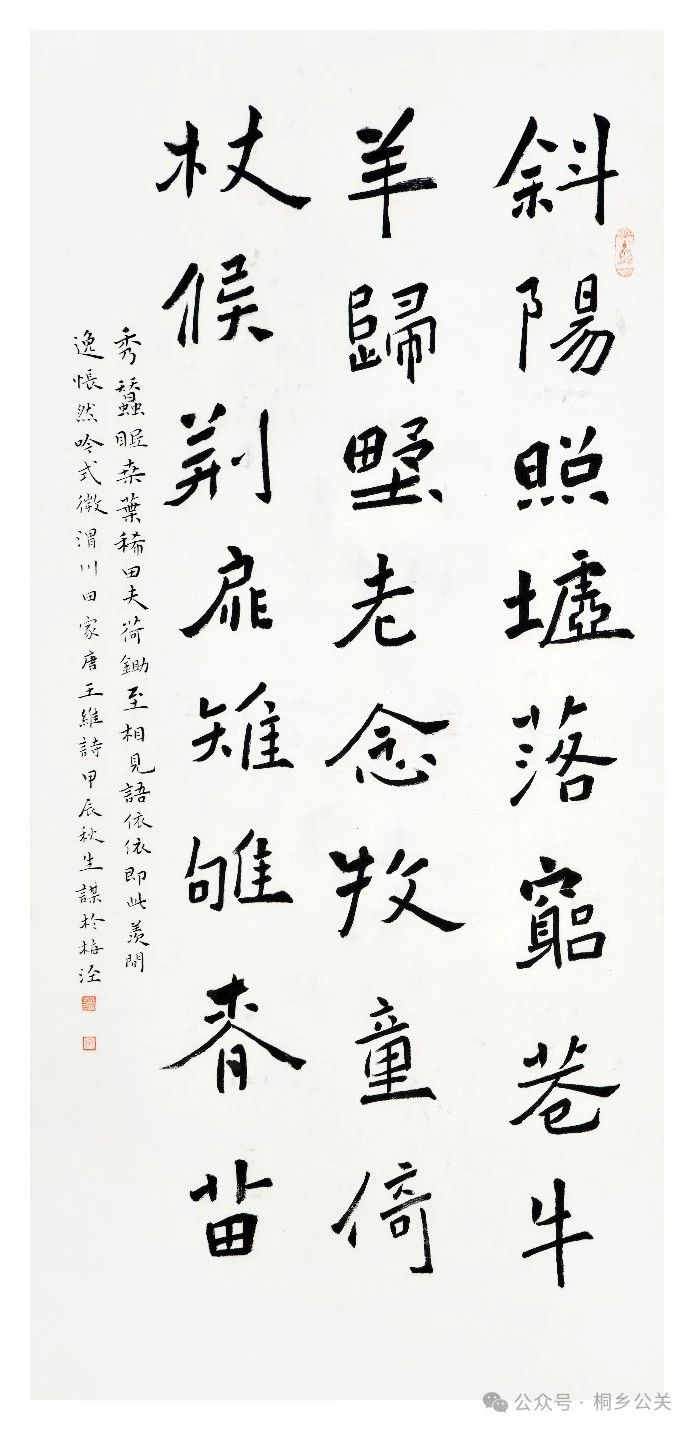 斜陽照墟落窮巷牛
羊歸野老念牧童倚
杖候荆扉雉雊春苗
秀蠶眠桒葉稀田夫荷鋤至相見語依依即此羨閒
逸悵然吟式微渭川田家唐王維詩甲辰秋生謀於梅泾
公众号·桐乡公关